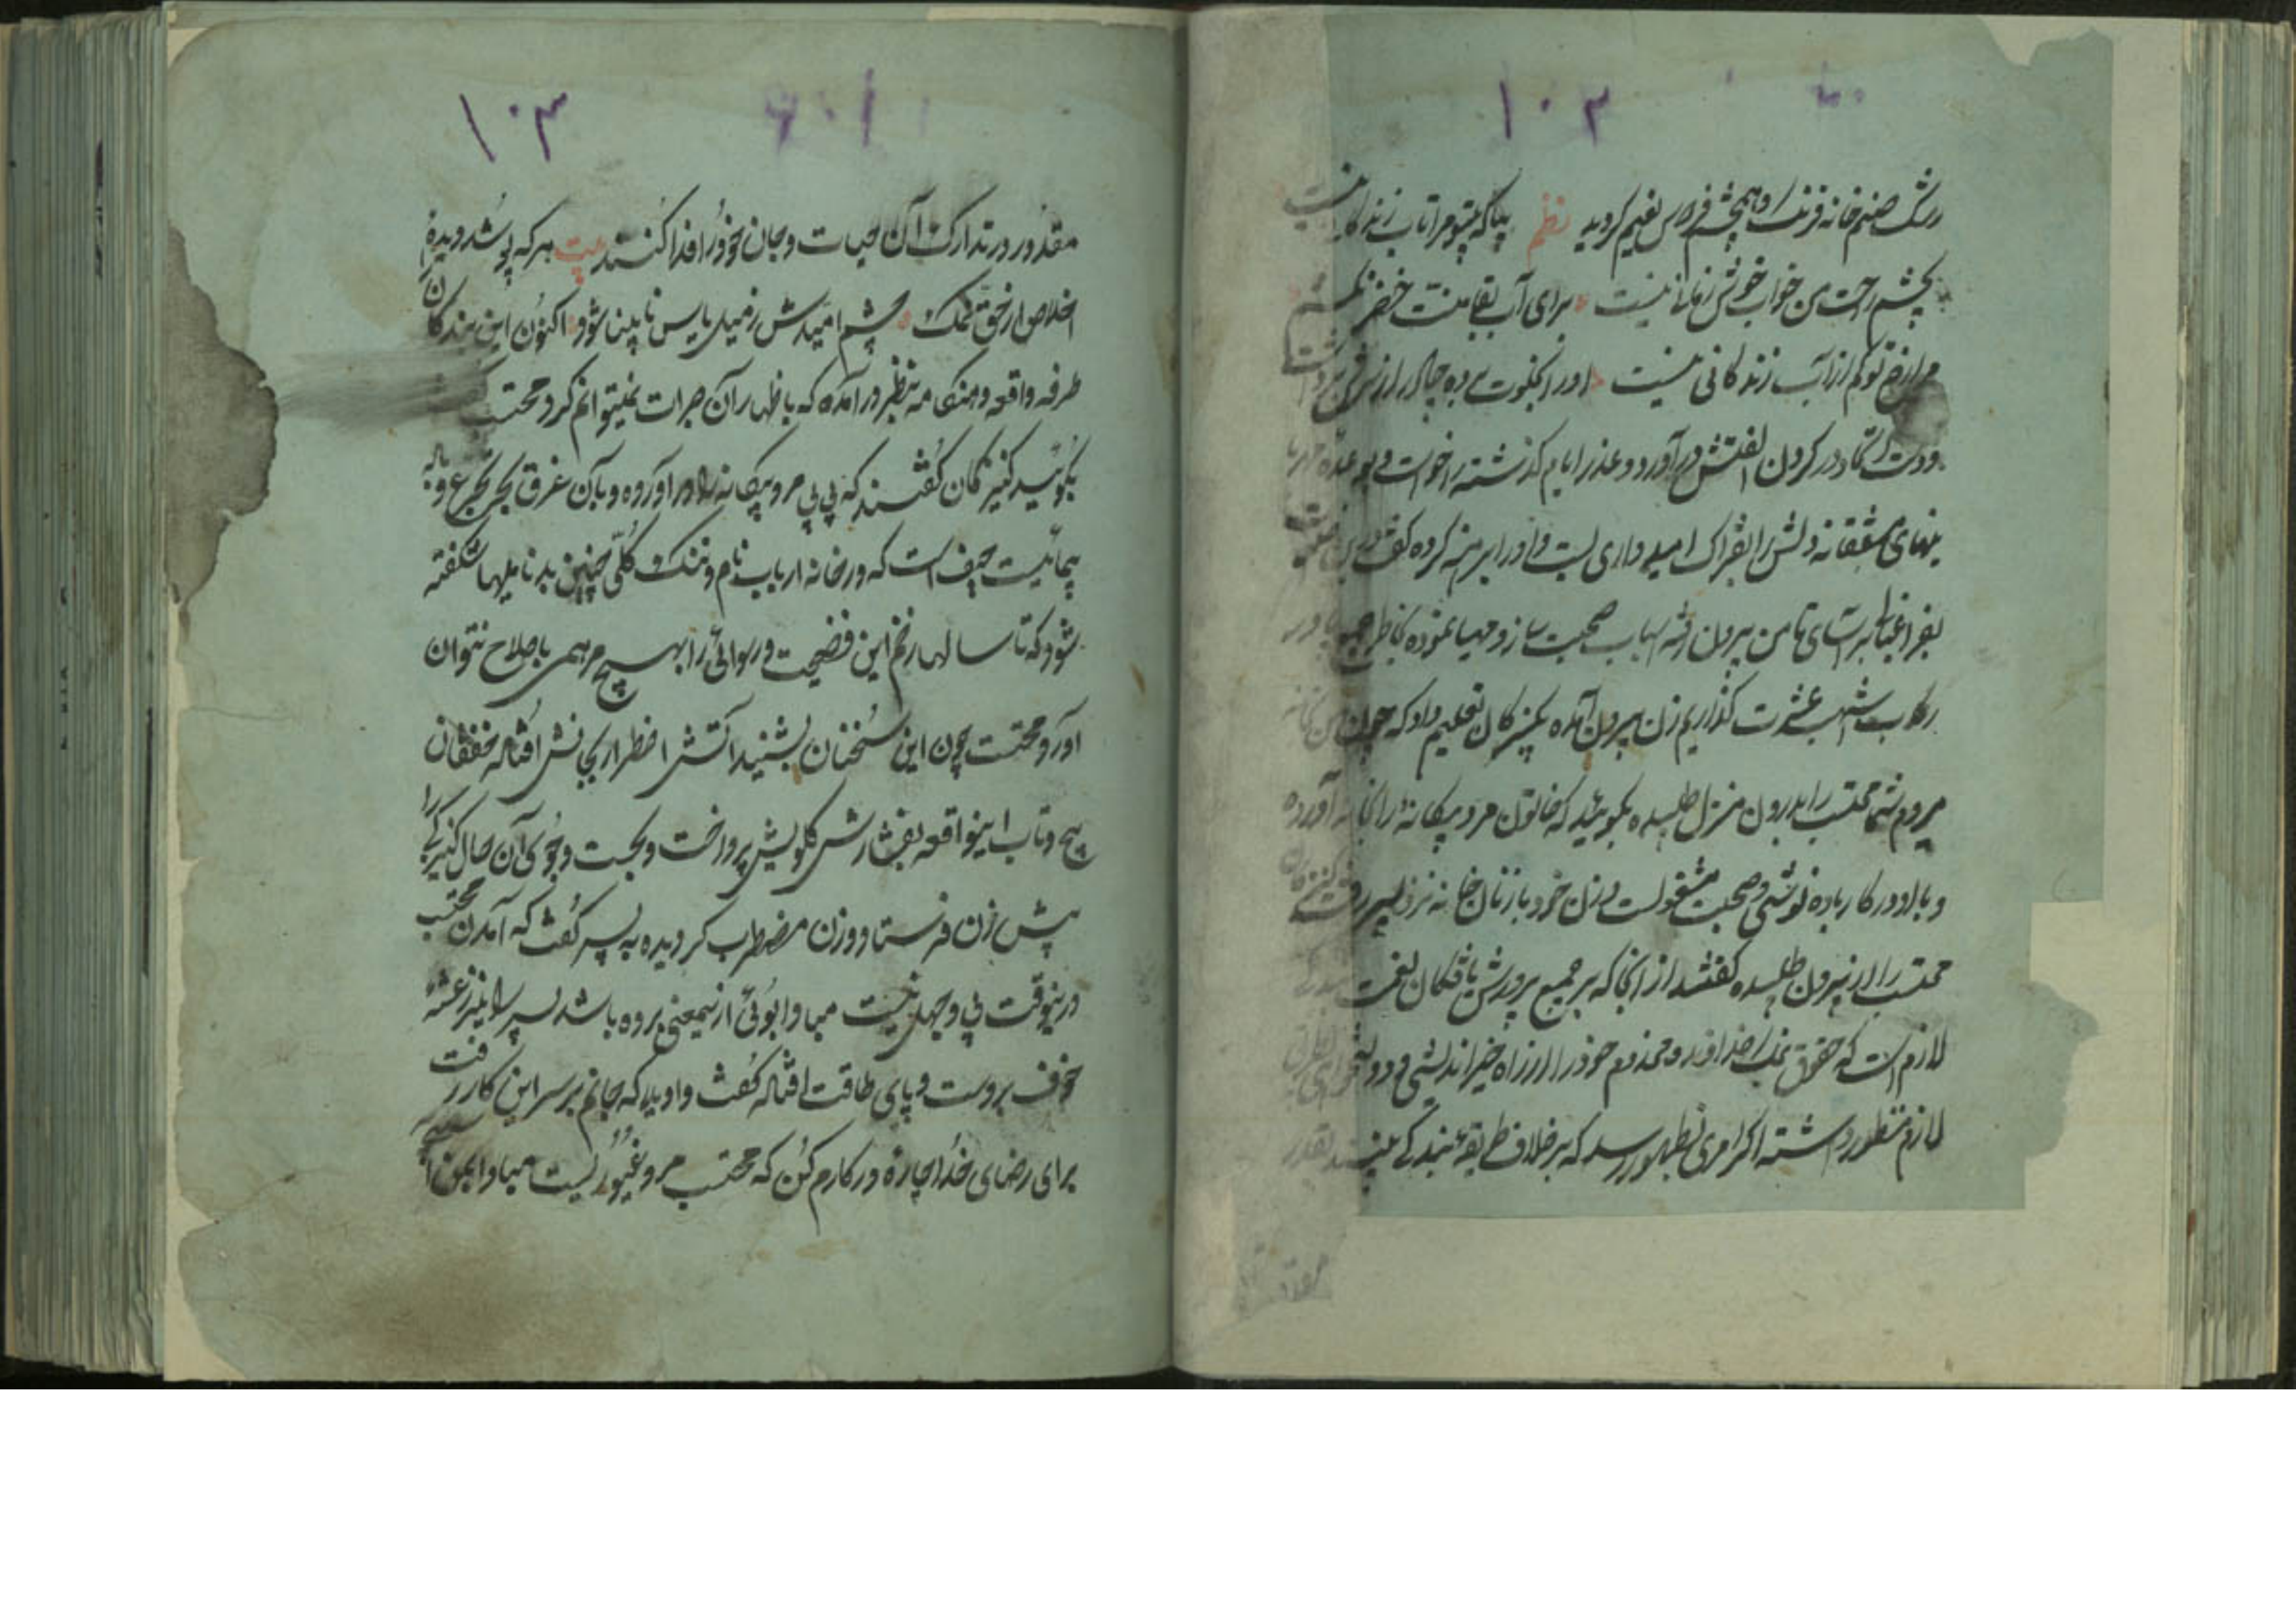 ۱۰۲
رشک صنم خانه فرنک و همچشم فردوس نعیم کردید نظم بیا که بیتو مرا تاب زندکانی نیست
بچشم راحت من خواب خوش زمانی نیست برای آب بقا منت خضر نکشم
مرا از تو کم از آب زندکانی نیست و او را بخلوت برده چادر از سرش برداشت
ودست در کردن الفتش در آورد و عذر ایام کذشته را خواست و بوعده
مشفقانه دلش را بفتراک امیدواری بست و او را برهنه کرده کفت
بفراغت تا من بیرون رفته اسباب صحبت ساز و مهیا نموده بخاطر جمع پا در
رکاب اشهب عشرت کذاریم زن بیرون آمده بکنیزکان تعلیم داد که چون من بخانه
میروم شما محتسب را بدرون منزل طلبیده بکوئید که خاتون مرد بیکانه را بخانه آورده
و با او در کار باده نوشی و صحبت مشغولست و زن خود با زنان خانه نزد پسر رفت کنیزکان
محتسب را از بیرون طلبیده کفتند از آنجا که بر جمیع پرورش یافتکان نعمت
لازم است که حقوق نمک خداوند و مخدوم خود را از راه خیر اندیشی و دولتخواهی
لازم منظور داشته اکر امری بظهور رسد که بر خلاف طریقه بندکی بینند بقدر
مقدور
۱۰۳
مقدور در تدارک آن حیات و جان خود را فدا کنند بیت هر که پوشد دیده
اخلاص از حق نمک چشم امیدش ز میل یاس نابینا شود اکنون این بندکان
طرفه واقعه و هنکامه بنظر در آمده که باظهار آن جرات نمیتوانم کرد محتسب
بکوئید کنیزکان کفتند که بی بی مرد بیکانه را در آورده و بآن غرق بحر تجرع و باده
پیمائیست حیف است که در خانه ارباب نام و ننک کلی چنین بدنامیها شکفته
شود که تا سالها زخم این فضیحت و رسوائی را بهیچ مرهمی باصلاح نتوان
آورد محتسب چون این سخنان بشنید آتش اضطرار بجانش افتاده خفقان
پیچ و تاب اینواقعه بفشارش کلویش پرداخت و بجست و جوی آن حال کنیزکی را
پیش زن فرستاد و زن مضطرب کردیده به پسر کفت که آمدن محتسب
درینوقت بی وجهی نیست مبادا بوئی ازینمعنی برده باشد پسر را لرز رعشه
خوف بر دست و پای طاقت افتاده کفت واویلا که جانم بر سر این کار رفت
برای رضای خدا چاره در کارم کن که محتسب مرد غیوریست مبادا